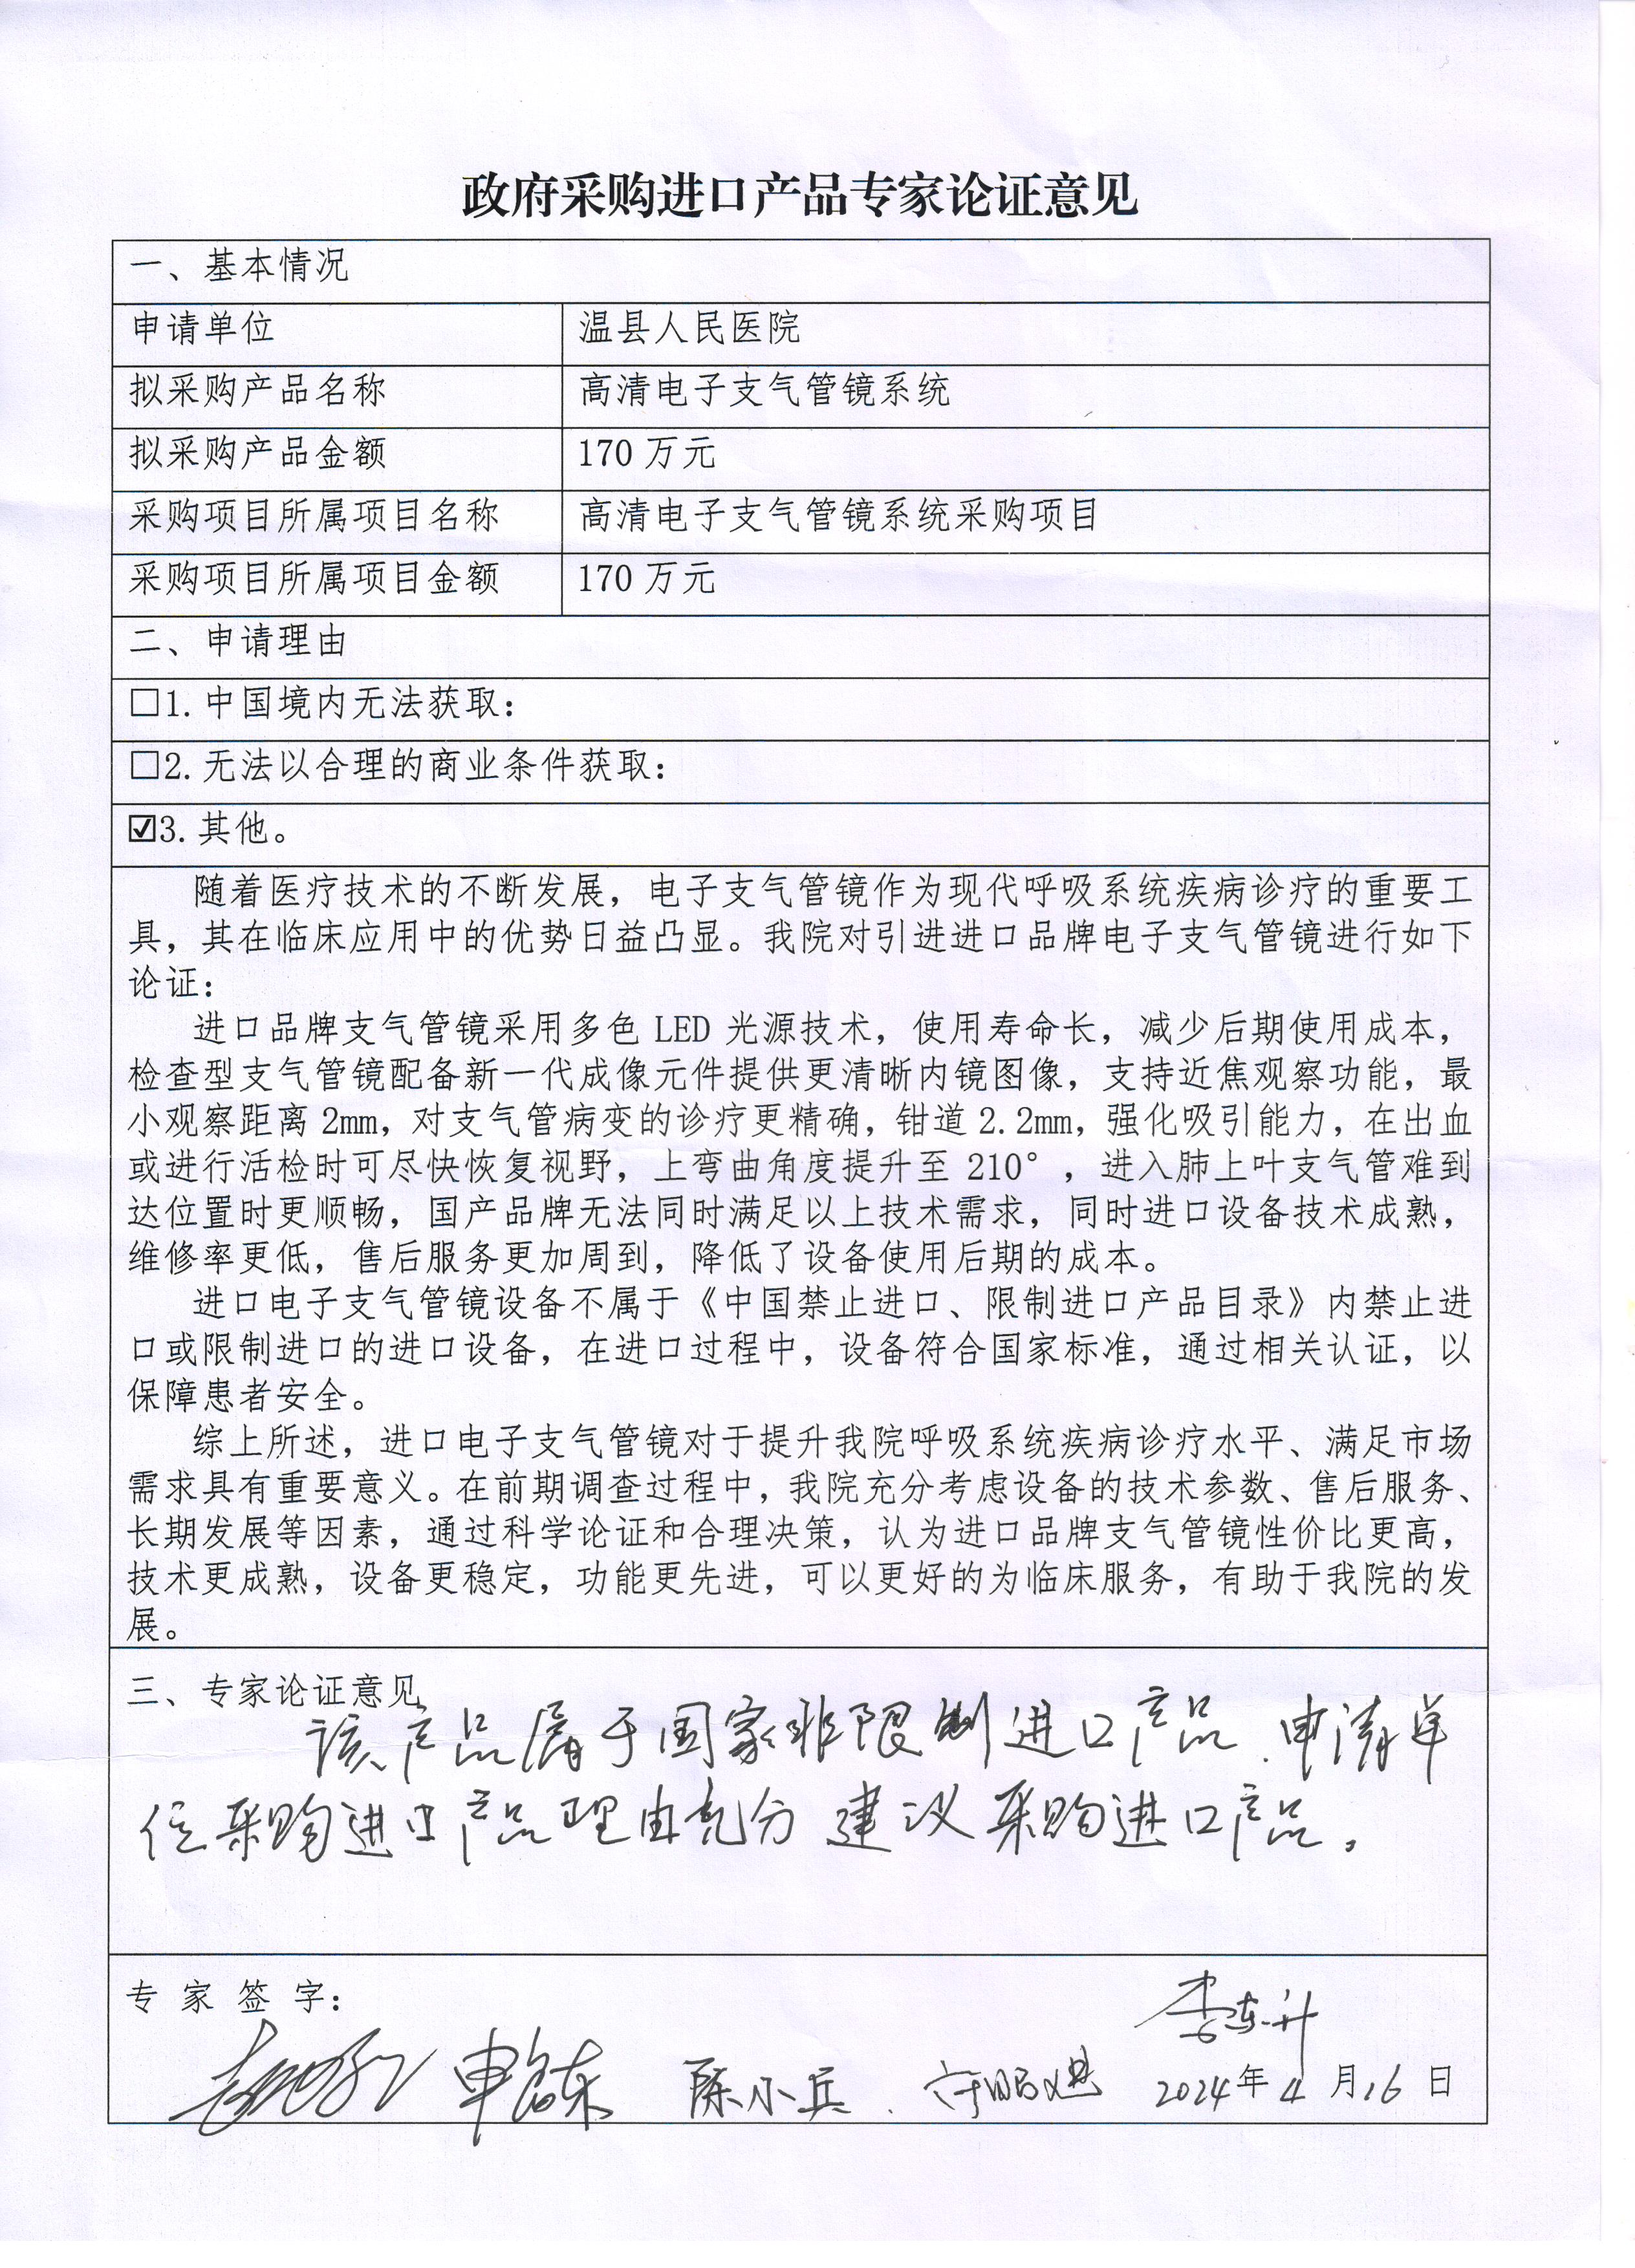 政府采购进口产品专家论证意见
一、基本情况
申请单位 温县人民医院
拟采购产品名称 高清电子支气管镜系统
拟采购产品金额 170万元
采购项目所属项目名称 高清电子支气管镜系统采购项目
采购项目所属项目金额 170万元
二、申请理由
□1.中国境内无法获取：
□2.无法以合理的商业条件获取：
☑3.其他。
随着医疗技术的不断发展，电子支气管镜作为现代呼吸系统疾病诊疗的重要工
具，其在临床应用中的优势日益凸显。我院对引进进口品牌电子支气管镜进行如下
论证：
进口品牌支气管镜采用多色LED光源技术，使用寿命长，减少后期使用成本，
检查型支气管镜配备新一代成像元件提供更清晰内镜图像，支持近焦观察功能，最
小观察距离2mm，对支气管病变的诊疗更精确，钳道2.2mm，强化吸引能力，在出血
或进行活检时可尽快恢复视野，上弯曲角度提升至210°，进入肺上叶支气管难到
达位置时更顺畅，国产品牌无法同时满足以上技术需求，同时进口设备技术成熟，
维修率更低，售后服务更加周到，降低了设备使用后期的成本。
进口电子支气管镜设备不属于《中国禁止进口、限制进口产品目录》内禁止进
口或限制进口的进口设备，在进口过程中，设备符合国家标准，通过相关认证，以
保障患者安全。
综上所述，进口电子支气管镜对于提升我院呼吸系统疾病诊疗水平、满足市场
需求具有重要意义。在前期调查过程中，我院充分考虑设备的技术参数、售后服务、
长期发展等因素，通过科学论证和合理决策，认为进口品牌支气管镜性价比更高，
技术更成熟，设备更稳定，功能更先进，可以更好的为临床服务，有助于我院的发
展。
三、专家论证意见
该产品属于国家非限制进口产品.申请单
位采购进口产品理由充分 建议采购进口产品。
专家签字：
李东升
陈小兵
2024年4月16日